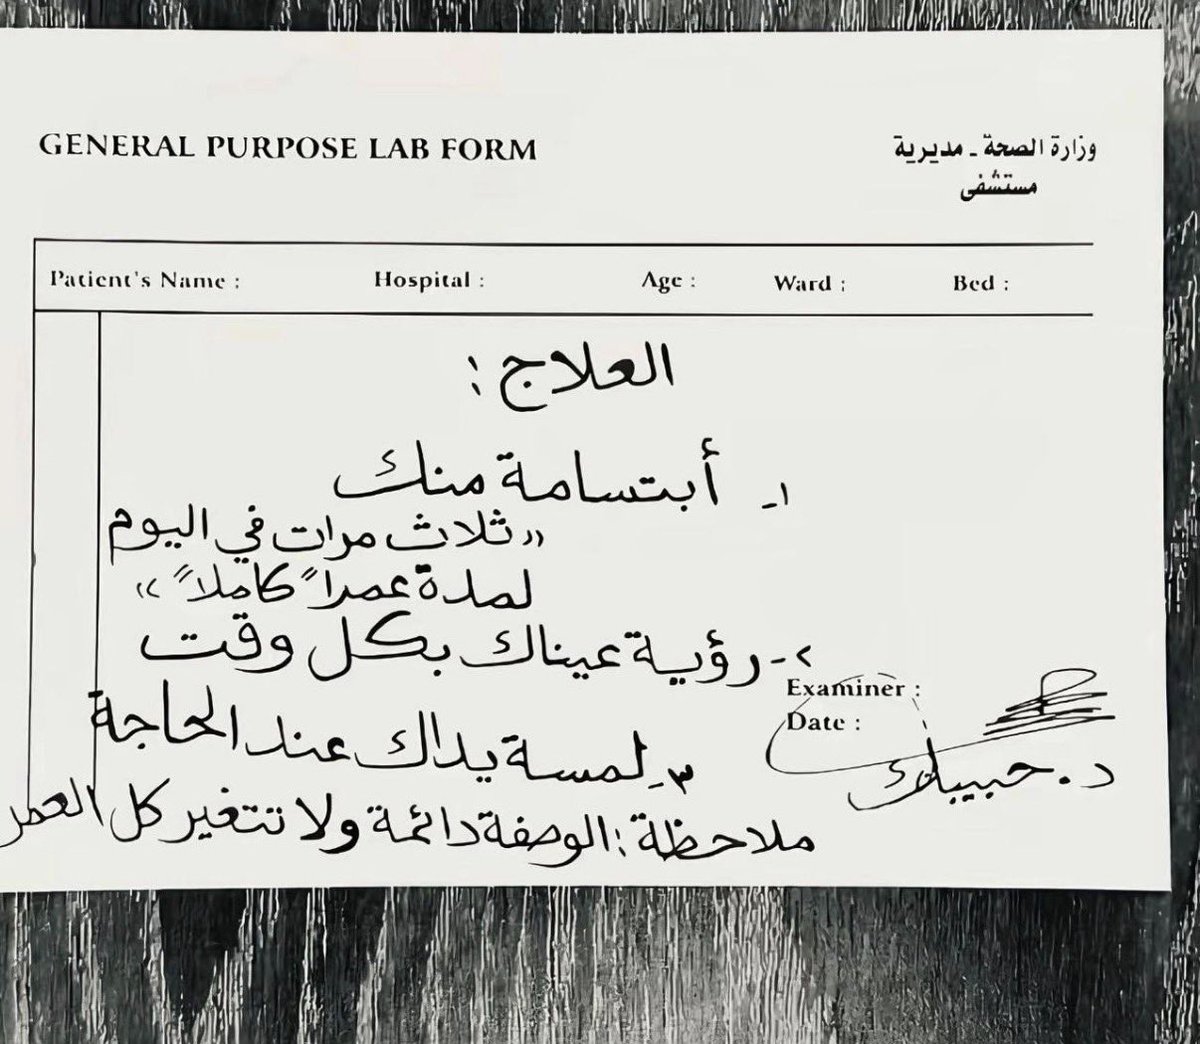 GENERAL PURPOSE LAB FORM
وزارة الصحة ـ مديرية
مستشفى
Patient's Name :
Hospital :
Age :
Ward :
Bed :
العلاج :
١ـ أبتسامة منك
«ثلاث مرات في اليوم
لمدة عمراً كاملاً»
٢- رؤية عيناك بكل وقت
Examiner :
Date :
٣ـ لمسة يداك عند الحاجة
د. حبيبك
ملاحظة : الوصفة دائمة ولا تتغير كل العمر